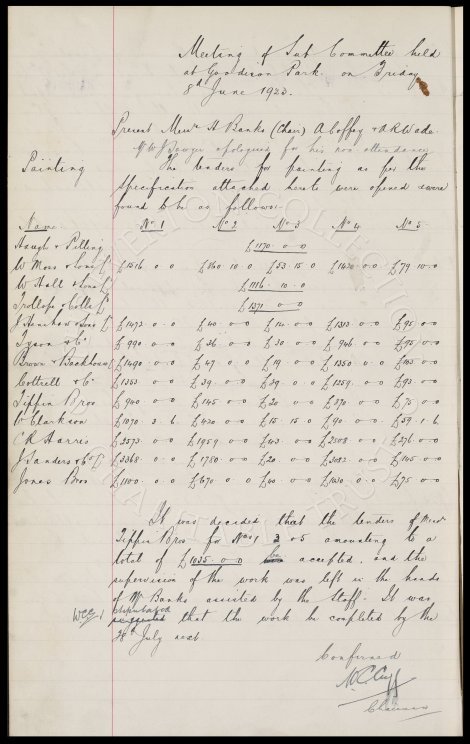 Meeting of Sub Committee held
at Goodison Park on Friday
8th June 1923.
Present Messrs H Banks (Chair) A Coffey & A R Wade.
Mr W J Sawyer apologised for his non attendance.
Painting The tenders for painting as per the
Specification attached hereto were opened & were
found to be as follows:-
Name No 1 No 2 No 3 No 4 No 5
Haugh & Pilling £1170-0-0
W Moss & Sons Ld £1516 0 0 £160 10 0 £53 15 0 £1420 0 0 £79 10 0
W Hall & Sons Ld £1116 10 0
Trollope & Colls Ld £1371 0 0
J Henshaw & Sons Ld £1472 0 0 £40 0 0 £14 0 0 £1313 0 0 £95 0 0
Tyson & Co £990 0 0 £36 0 0 £30 0 0 £946 0 0 £95 0 0
Brown & Backhouse £1490 0 0 £49 0 0 £19 0 0 £1350 0 0 £105 0 0
Cottrell & Co £1353 0 0 £39 0 0 £39 0 0 £1259 0 0 £93 0 0
Tiffin Bros £940 0 0 £145 0 0 £20 0 0 £870 0 0 £75 0 0
W Clarkson £1070 3 6 £420 0 0 £15 15 0 £90 0 0 £59 1 6
C R Harris £2573 0 0 £1959 0 0 £143 0 0 £2508 0 0 £276 0 0
J Sanders & Co Ld £3368 0 0 £1780 0 0 £20 0 0 £3082 0 0 £145 0 0
Jones Bros £1100 0 0 £670 0 0 £40 0 0 £1030 0 0 £75 0 0
It was decided that the tenders of Messrs
Tiffin Bros for Nos 1 3 & 5 amounting to a
total of £1035-0-0 be accepted, and the
supervision of the work was left in the hands
of Mr Banks assisted by the Staff. It was
WCC/ stipulated
suggested that the work be completed by the
28th July next.
Confirmed
W.C. Cuff
Chairman